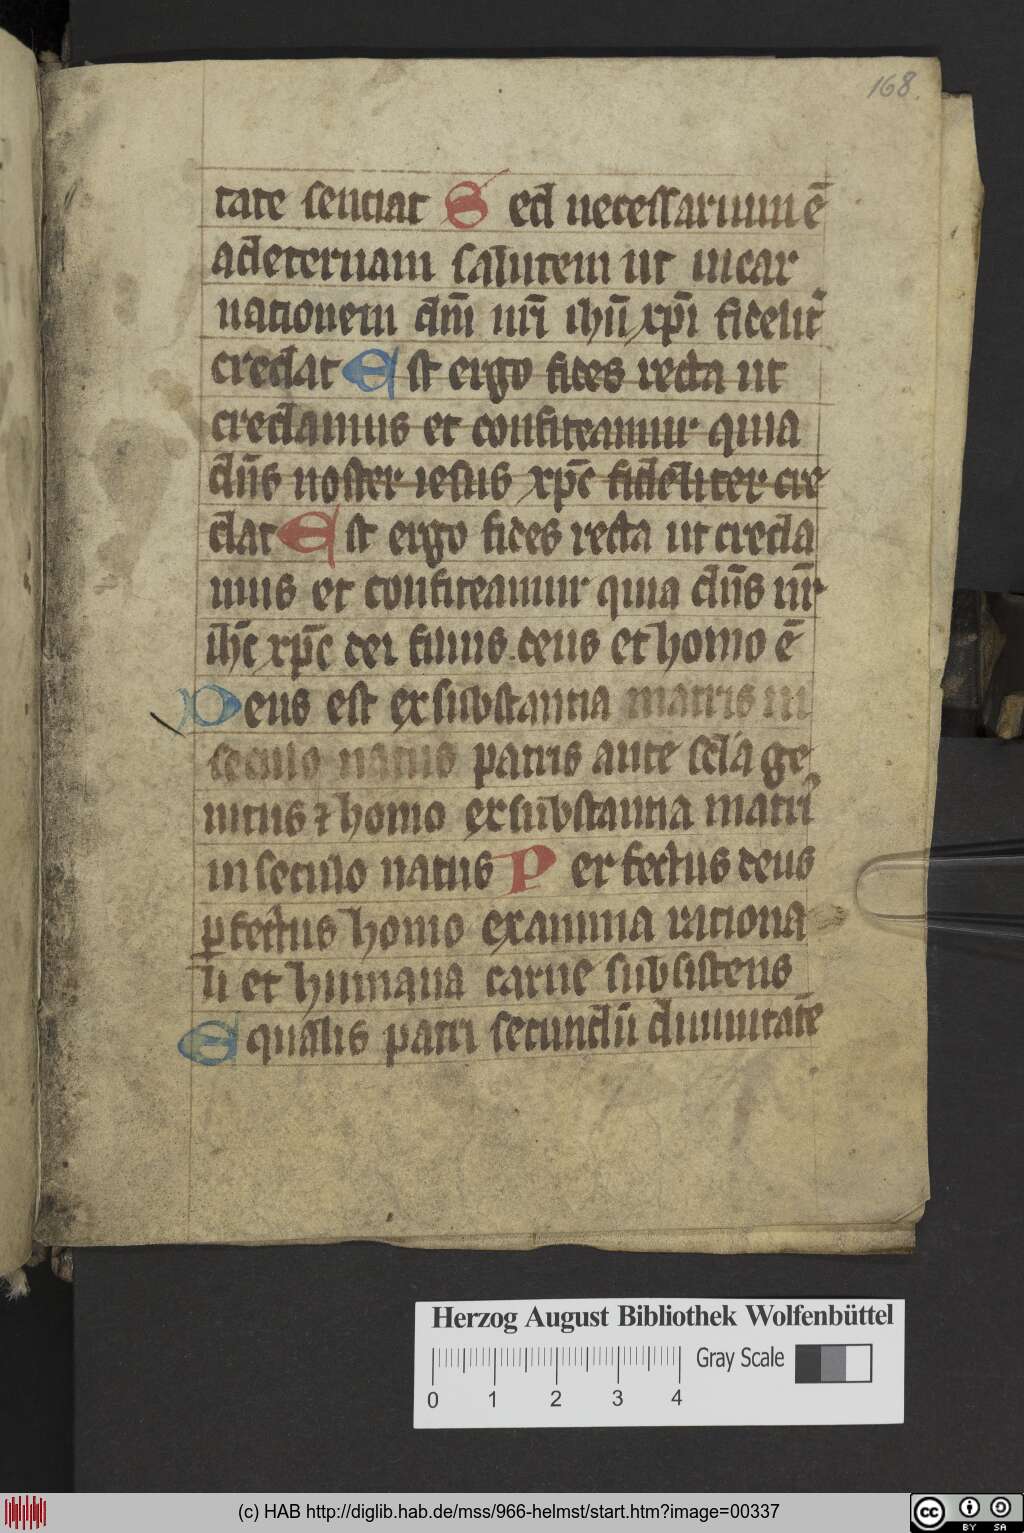 168
tate sentiat Sed necessarium ē
ad eternam salutem ut incar
nationem dn̄i nr̄i ihū xp̄i fidelit̄
credat Est ergo fides recta ut
credamus et confiteamur quia
dn̄s noster iesus xp̄c fideliter cre
dat Est ergo fides recta ut creda
mus et confiteamur quia dn̄s nr̄
ih̄c xp̄c dei filius deus et homo ē
Deus est ex substantia matris in
seculo natus patris ante scl̄a ge
nitus ⁊ homo ex substantia matri᷒
in seculo natus Perfectus deus
ꝑfectus homo ex anima rationa
li et humana carne subsistens
Equalis patri secundū diuinitatē
Herzog August Bibliothek Wolfenbüttel
Gray Scale
0 1 2 3 4
(c) HAB http://diglib.hab.de/mss/966-helmst/start.htm?image=00337
cc BY SA